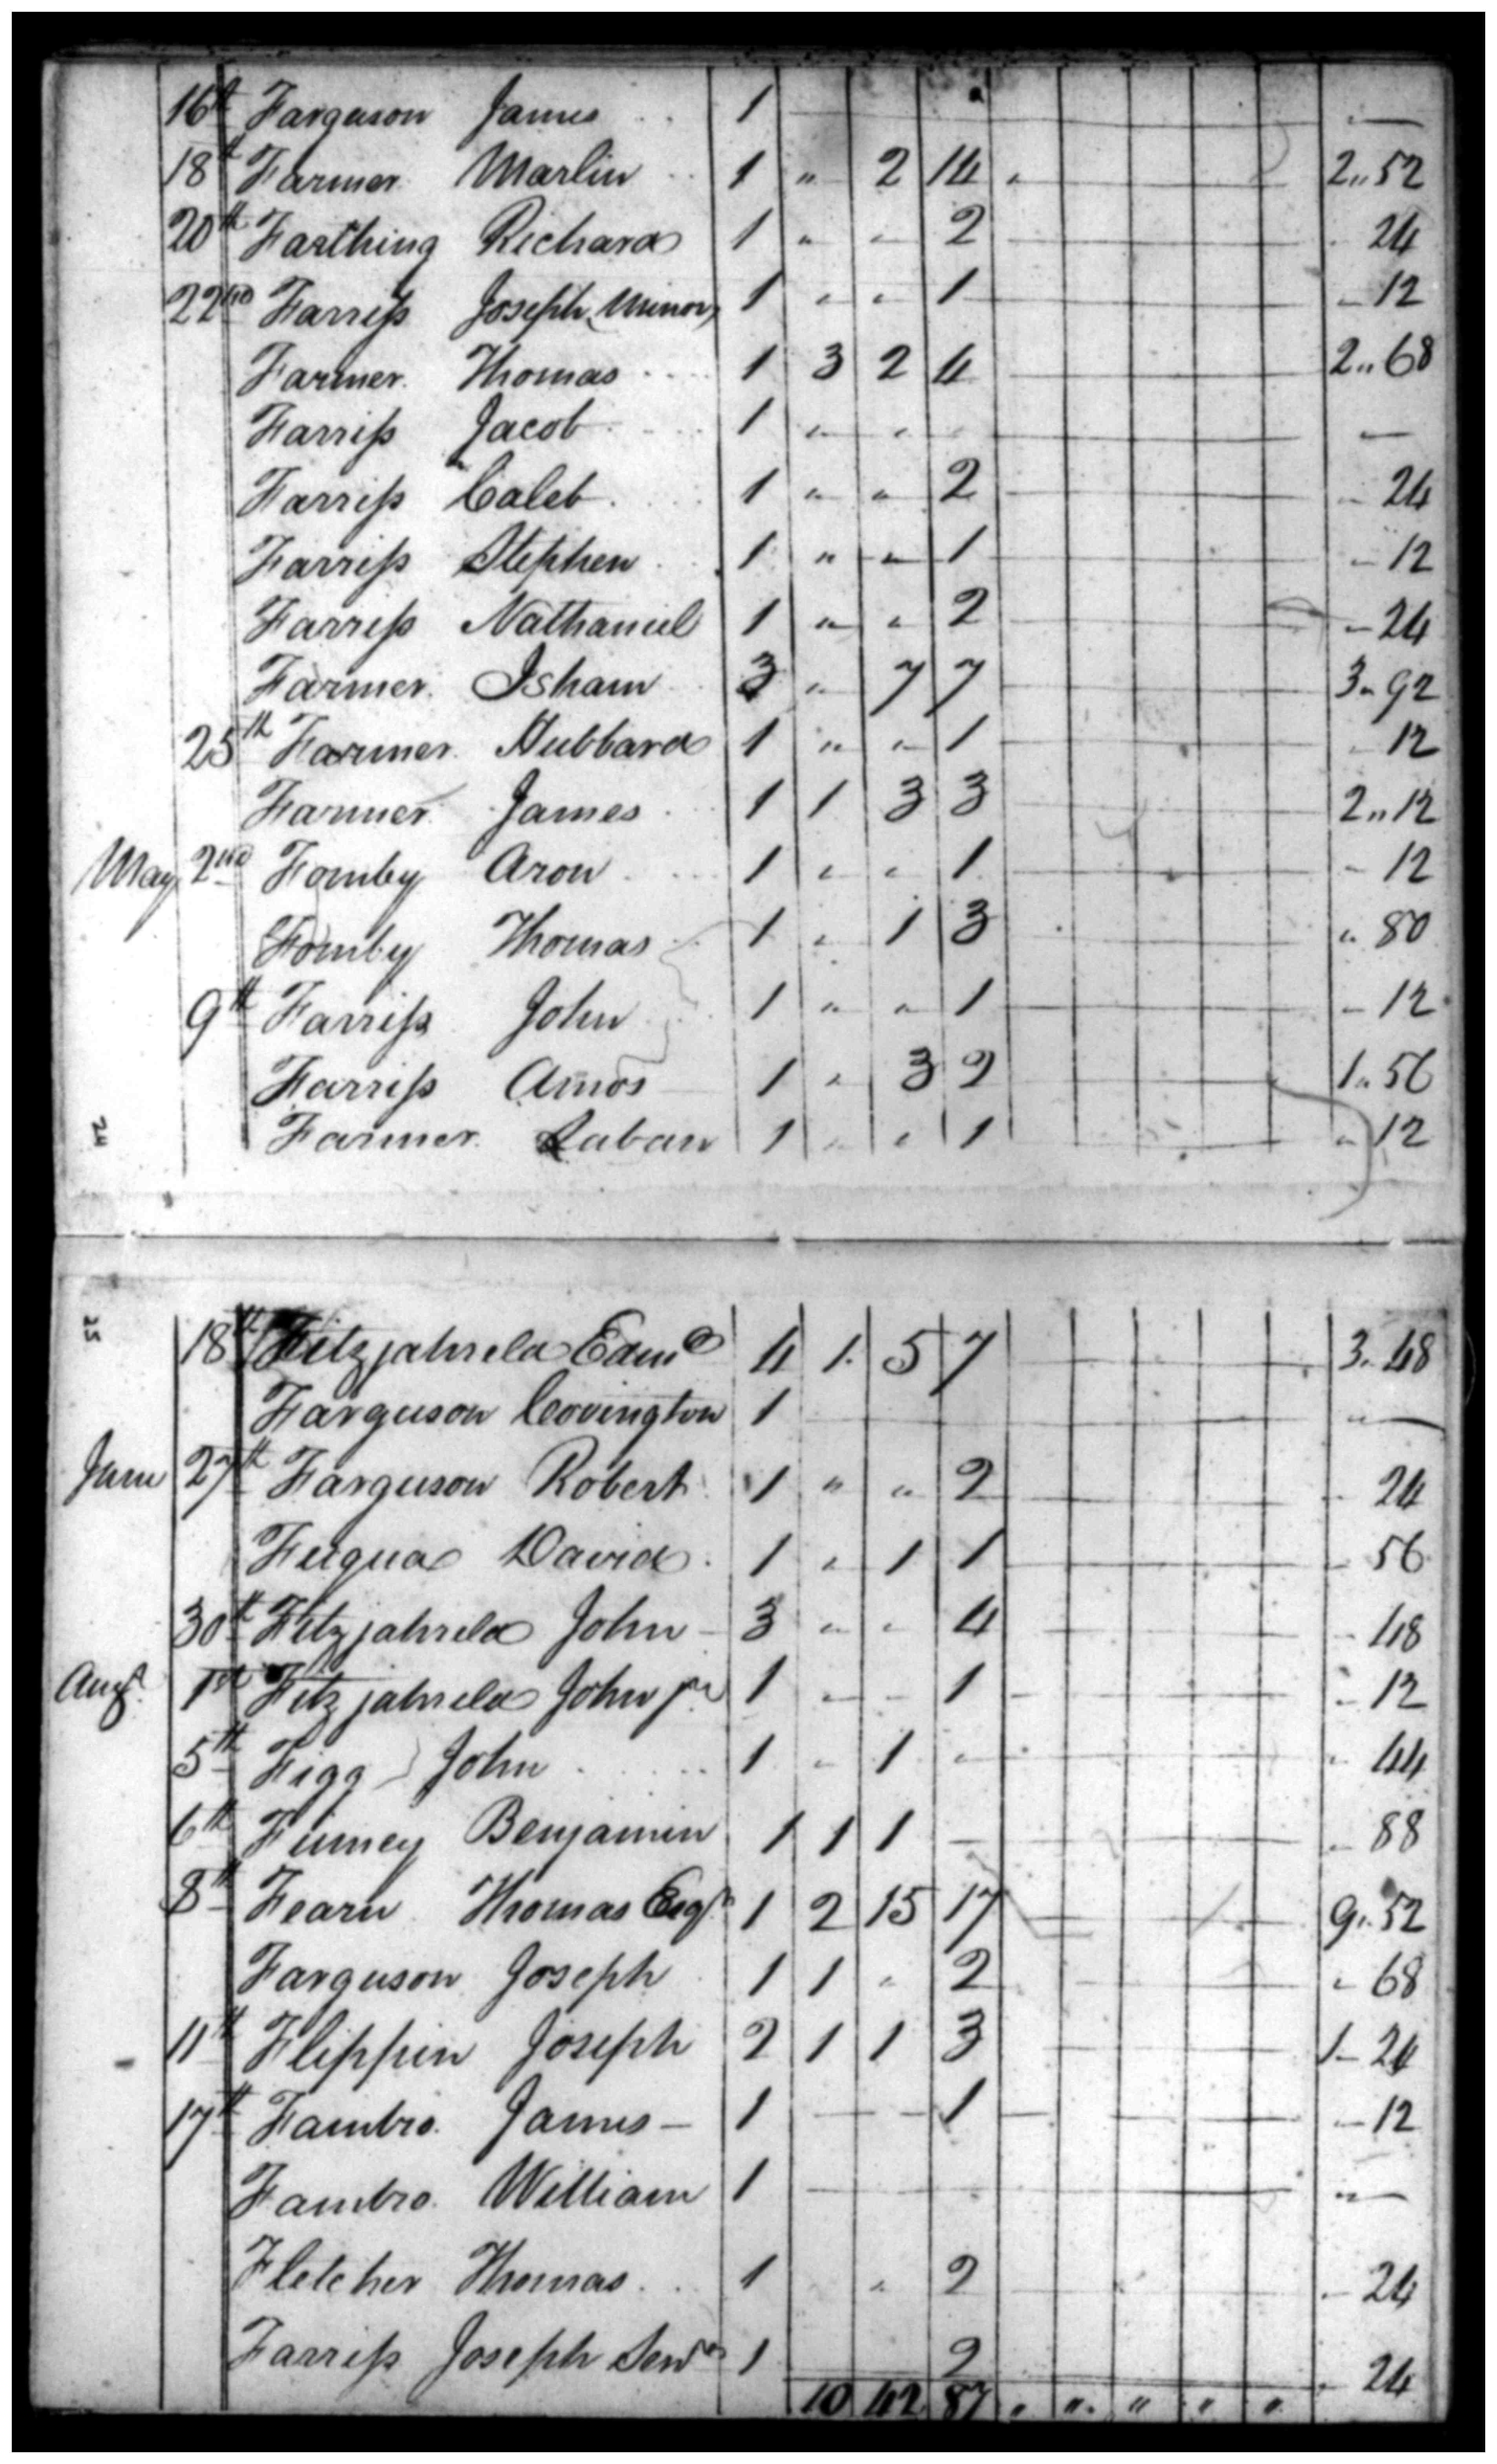 16th Farguson James . . 1 —
18th Farmer Marlin . . 1 " 2 14 2..52
20th Farthing Richard 1 " " 2 24
22nd Farriss Joseph (Minor) 1 " " 1 12
Farmer Thomas . . . 1 3 2 4 2..68
Farriss Jacob . . . 1 " " —
Farriss Caleb . . . 1 " " 2 24
Farriss Stephen . . 1 " " 1 12
Farriss Nathaniel 1 " " 2 24
Farmer Isham . . 3 " 7 7 3..92
25th Farmer Hubbard 1 " " 1 12
Farmer James . . 1 1 3 3 2..12
May 2nd Fomby Aron . . . 1 " " 1 12
Fomby Thomas . . 1 " 1 3 " 80
9th Farriss John . . 1 " " 1 12
Farriss Amos 1 " 3 2 1..56
24 Farmer Laban 1 " " 1 " 12
25
18th Fitzjahreld Edmd 4 1 5 7 3..48
Farguson Covington 1 " —
June 27th Farguson Robert 1 " " 2 24
Fuqua David . 1 " 1 1 56
30th Fitzjahreld John – 3 " " 4 48
Augt 1st Fitzjahreld John jr 1 " " 1 12
5th Figg John . . . . 1 " 1 " 44
6th Finney Benjamin 1 1 1 — 88
8th Fearn Thomas Esqr 1 2 15 17 9..52
Farguson Joseph 1 1 " 2 " 68
11th Flippin Joseph 2 1 1 3 1–24
17th Fambro. James – 1 — — 1 12
Fambro. William 1 " —
Fletcher Thomas . . . 1 " 2 24
Farriss Joseph Senr 1 2 24
10 42 87 " " " " "